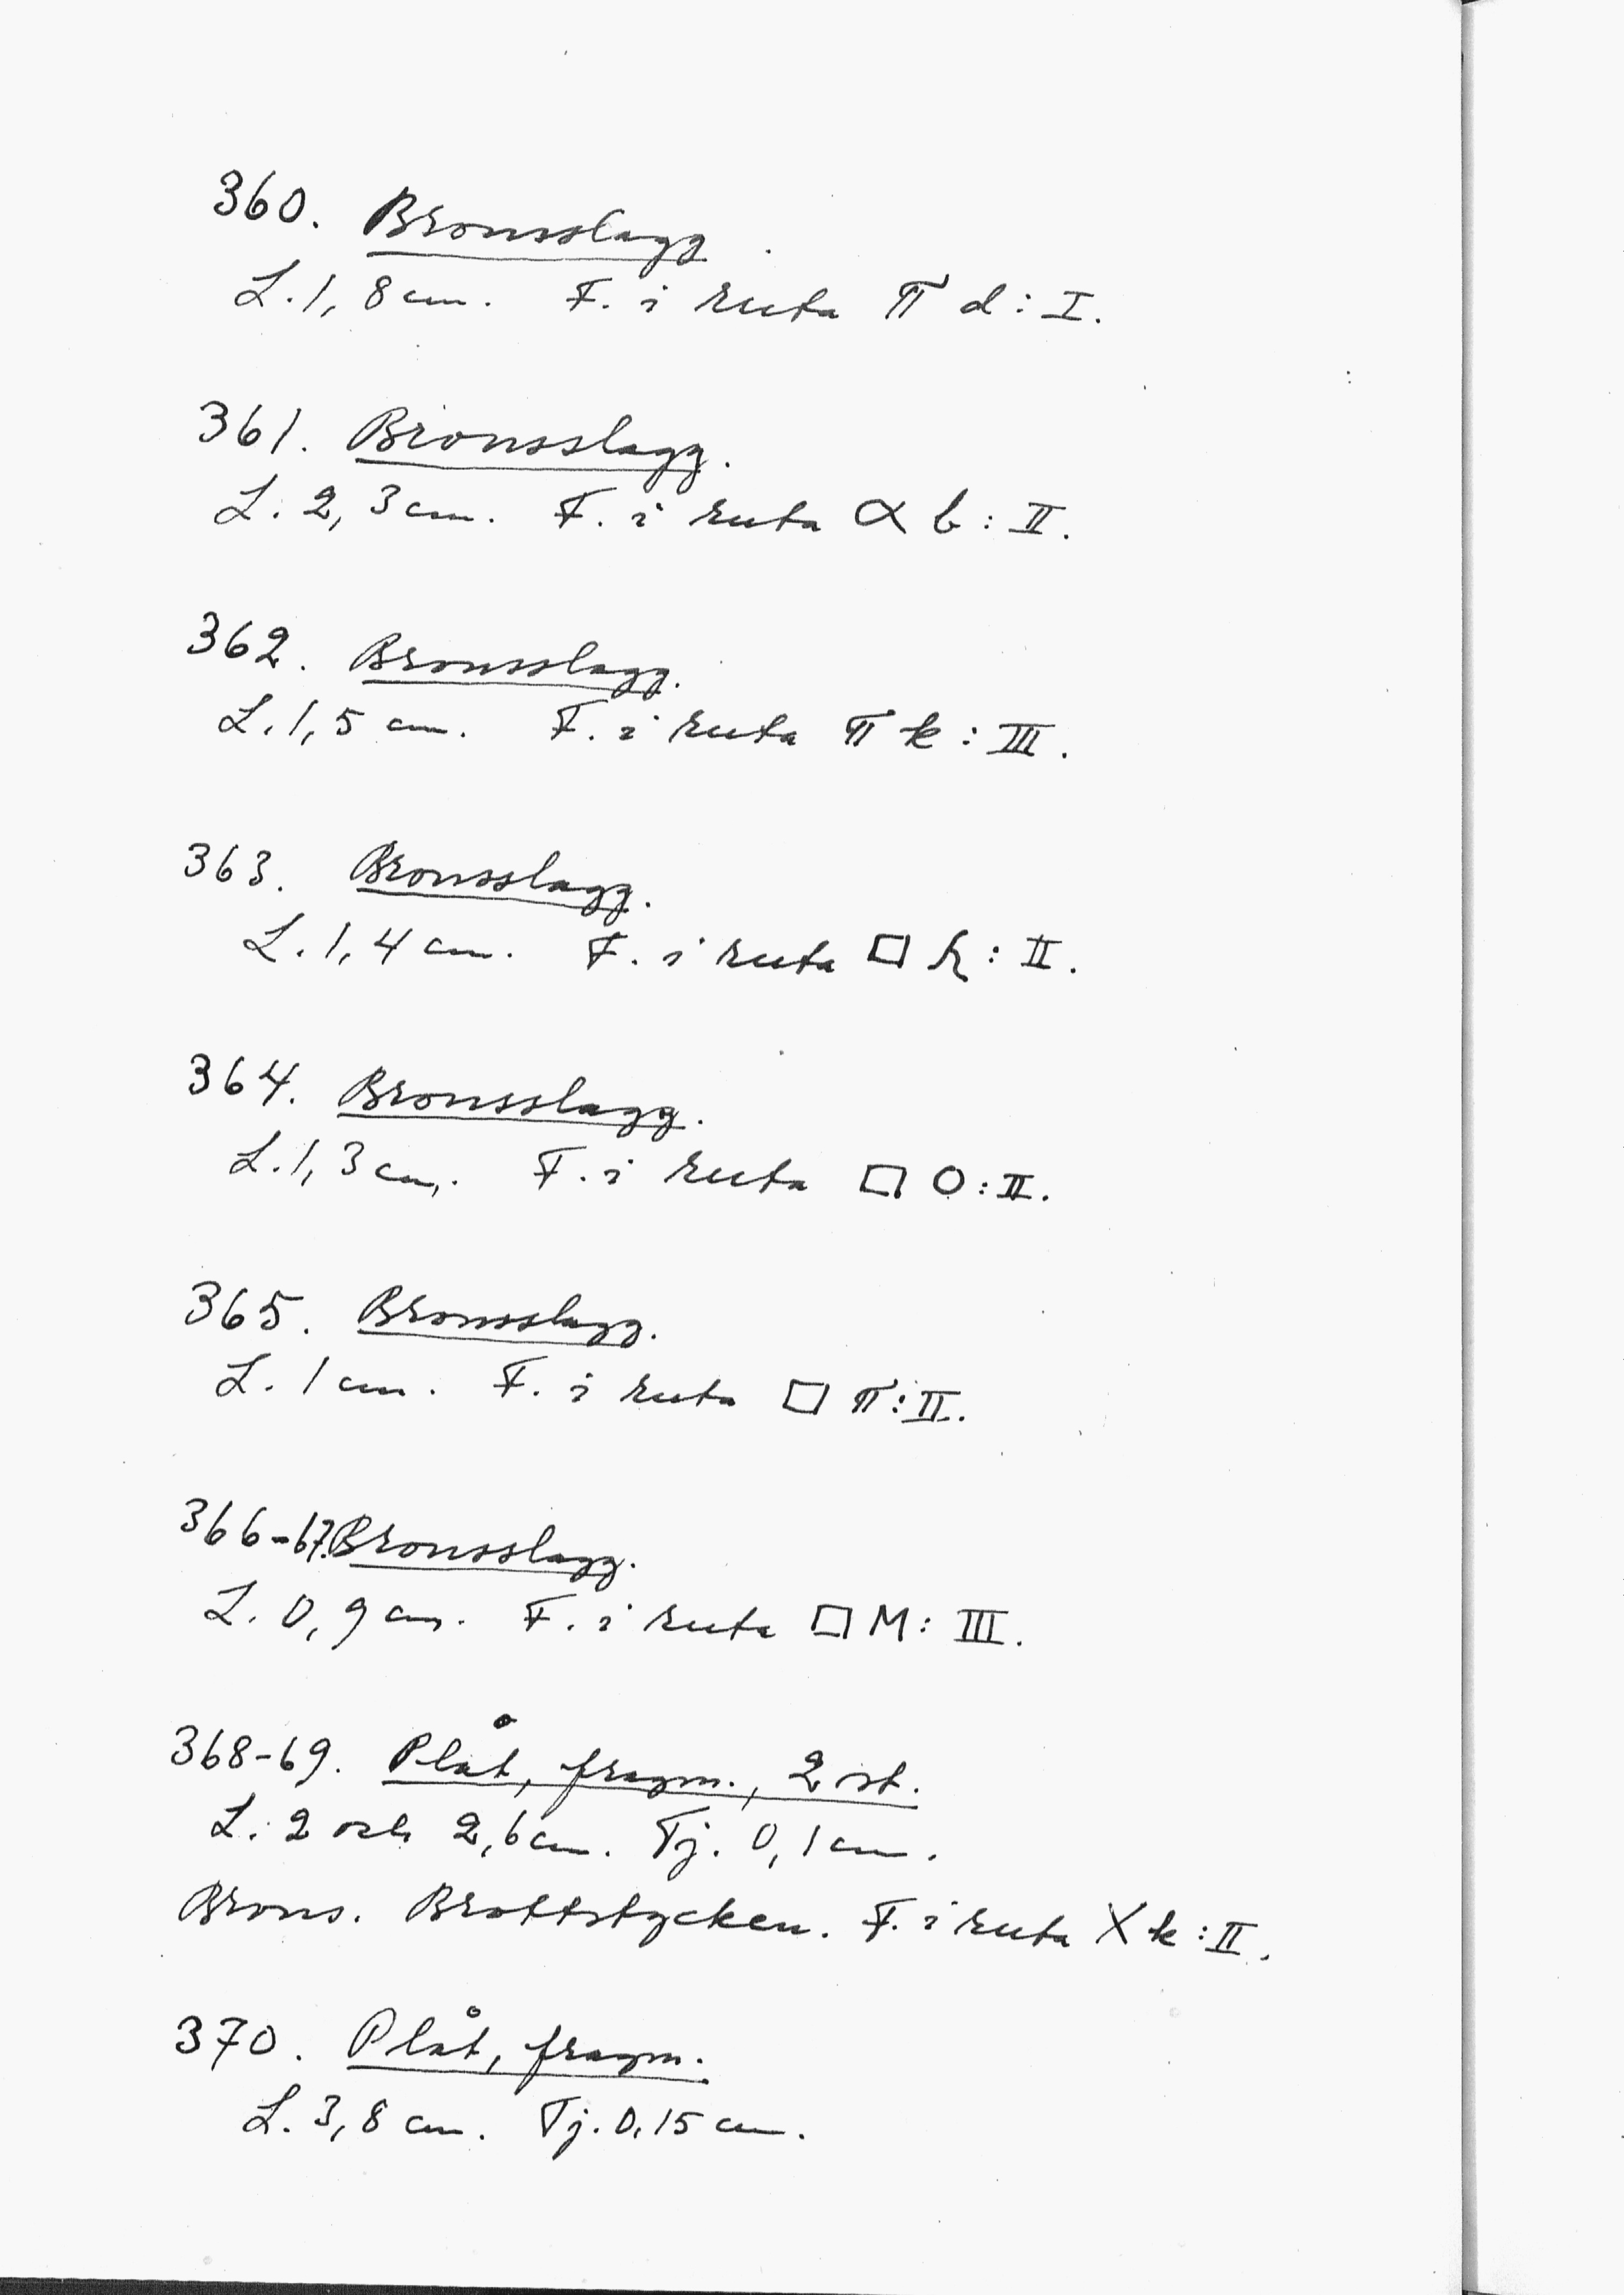 360. Bronsslagg.
L. 1,8 cm. F. i ruta π d : I.
361. Bronsslagg.
L. 2,3 cm. F. i ruta α b : II.
362. Bronsslagg.
L. 1,5 cm. F. i ruta π k : III.
363. Bronsslagg.
L. 1,4 cm. F. i ruta □ h : II.
364. Bronsslagg.
L. 1,3 cm. F. i ruta □ O : II.
365. Bronsslagg.
L. 1 cm. F. i ruta □ π : II.
366-67. Bronsslagg.
L. 0,9 cm. F. i ruta □ M : III.
368-69. Plåt, fragm., 2 st.
L. 2 och 2,6 cm. Tj. 0,1 cm.
Brons. Brottstycken. F. i ruta X k : II.
370. Plåt, fragm.
L. 3,8 cm. Tj. 0,15 cm.